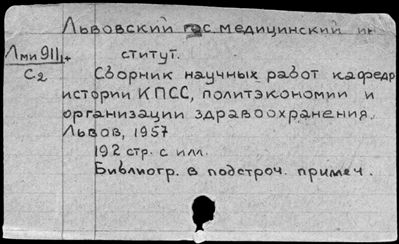 Львовский гос. медицинский ин
ститут.
Лми 911.
С2
Сборник научных работ кафедр
истории КПСС, политэкономии и
организации здравоохранения.
Львов, 1957
192 стр. с илл.
Библиогр. в подстроч. примеч.